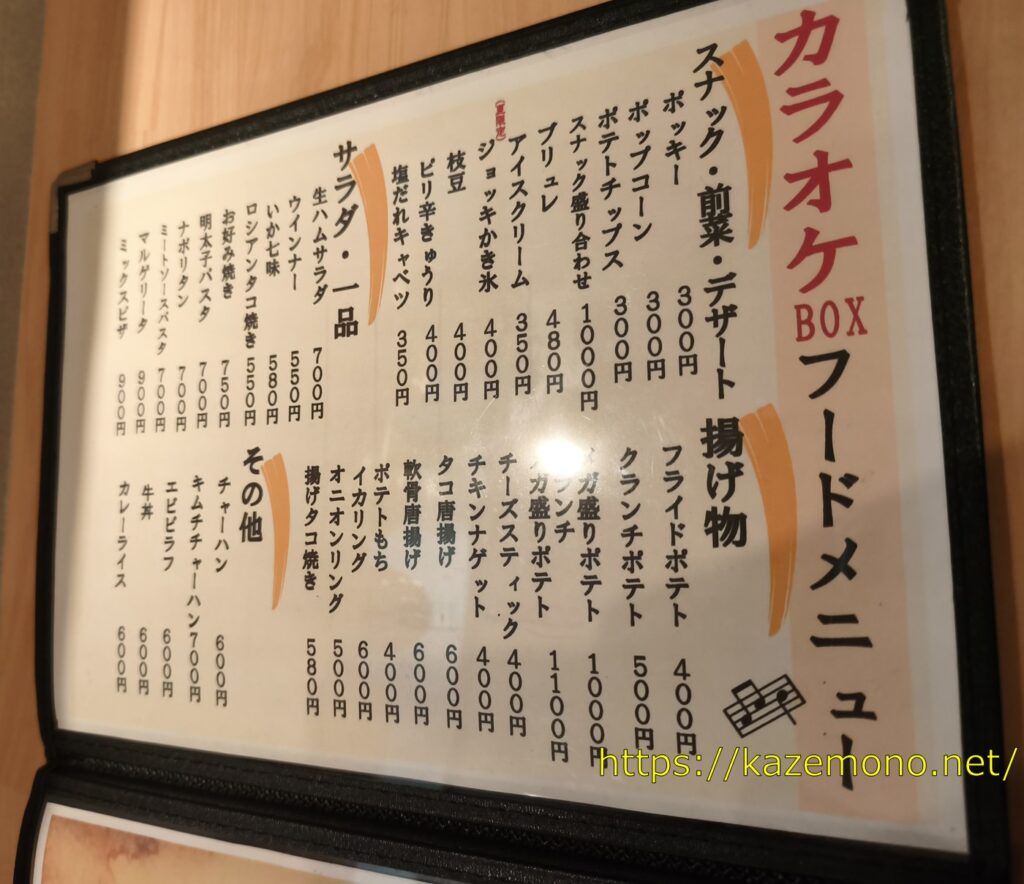 カラオケBOXフードメニュー
スナック・前菜・デザート
ポッキー 300円
ポップコーン 300円
ポテトチップス 300円
スナック盛り合わせ 1000円
ブリュレ 480円
アイスクリーム 350円
(夏限定)
ジョッキかき氷 400円
枝豆 400円
ピリ辛きゅうり 400円
塩だれキャベツ 350円
サラダ・一品
生ハムサラダ 700円
ウインナー 550円
いか七味 580円
ロシアンタコ焼き 550円
お好み焼き 750円
明太子パスタ 700円
ナポリタン 700円
ミートソースパスタ 700円
マルゲリータ 900円
ミックスピザ 900円
揚げ物
フライドポテト 400円
クランチポテト 500円
ガ盛りポテト 1000円
ランチ
ガ盛りポテト 1100円
チーズスティック 400円
チキンナゲット 400円
タコ唐揚げ 600円
軟骨唐揚げ 600円
ポテトもち 400円
イカリング 600円
オニオンリング 500円
揚げタコ焼き 580円
その他
チャーハン 600円
キムチチャーハン 700円
エビピラフ 600円
牛丼 600円
カレーライス 600円
https://kazemono.net/